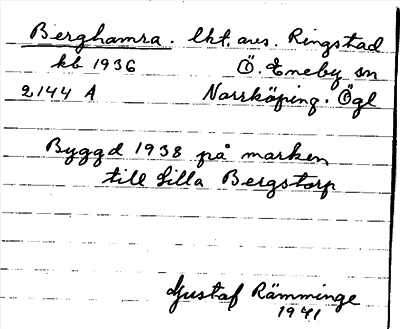 Berghamra. lht. avs. Ringstad
kb 1936 Ö. Eneby sn
2144 A Norrköping. Ögl
Byggd 1938 på marken
till Lilla Bergstorp
Gustaf Rämminge
1941